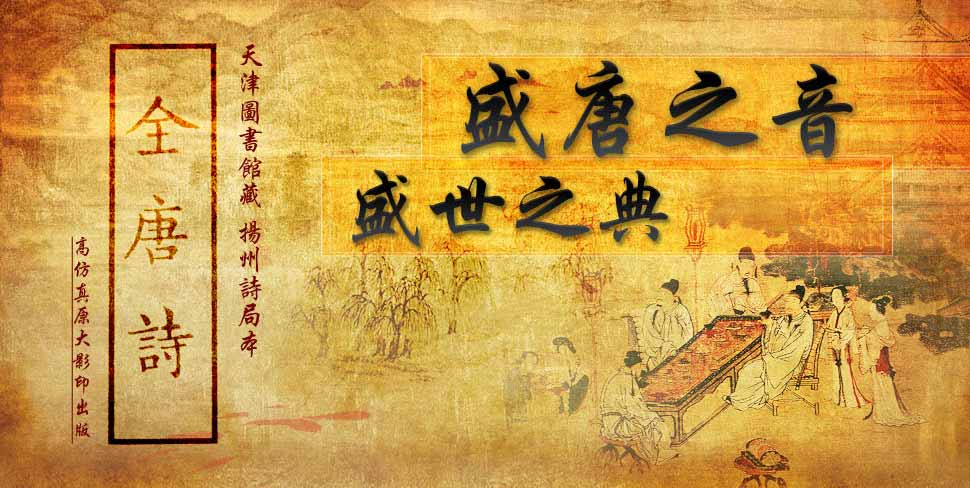 盛唐之音
盛世之典
天津圖書館藏 揚州詩局本
全唐詩
高仿真原大影印出版